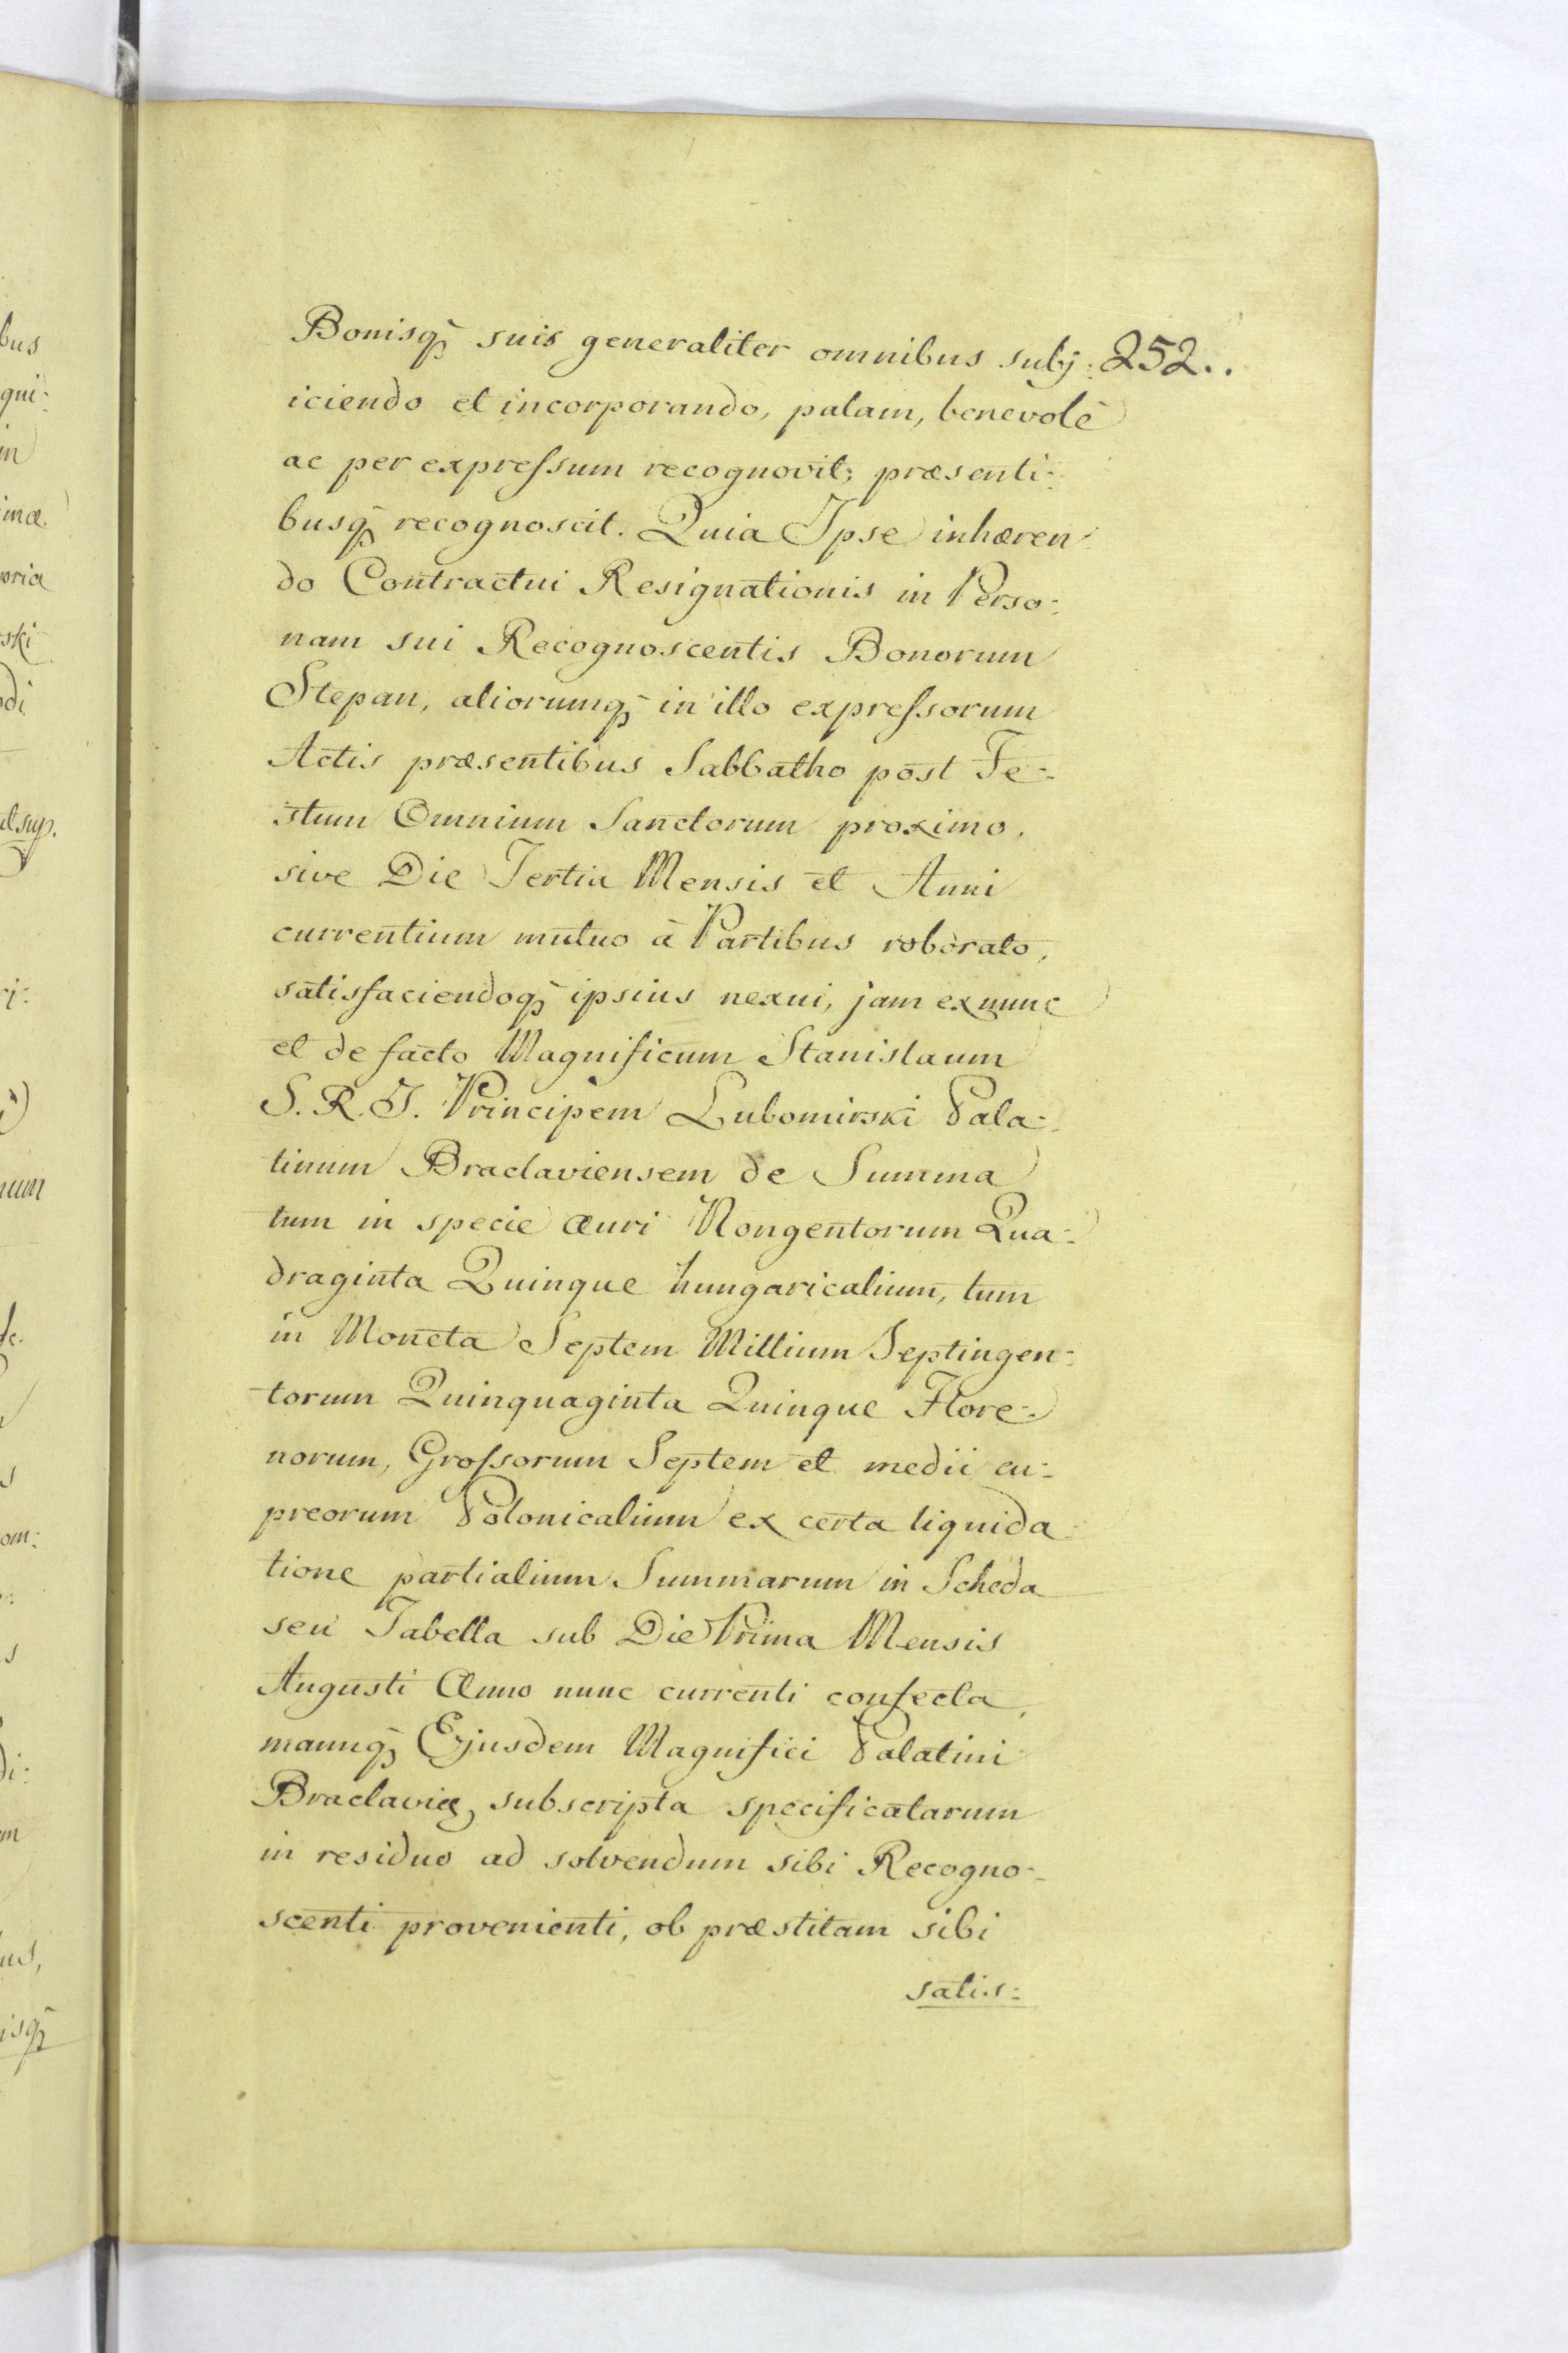 252..
Bonisq̃ suis generaliter omnibus subj:
iciendo et incorporando, palam, benevolè
ac per expreſsum recognovit, præsenti:
busq̃ recognoscit. Quia Ipse inhæren
do Contractui Resignationis in Perso:
nam sui Recognoscentis Bonorum
Stepan, aliorumq̃ in illo expreſsorum
Actis præsentibus Sabbatho post Fe:
stum Omnium Sanctorum proximo,
sive Die Tertia Mensis et Anni
currentium mutuo à Partibus roborato,
satisfaciendoq̃ ipsius nexui, jam ex nunc
et de facto Magnificum Stanislaum
S. R. I. Principem Lubomirski Pala:
tinum Braclaviensem de Summa
tum in specie auri Nongentorum Qua:
draginta Quinque hungaricalium, tum
in Moneta Septem Millium Septingen:
torum Quinquaginta Quinque Flore:
norum, Groſsorum Septem et medii cu:
preorum Polonicalium ex certa liquida:
tione partialium Summarum in Scheda
seu Tabella sub Die Prima Mensis
Augusti Anno nunc currenti confecta,
manuq̃ Ejusdem Magnifici Palatini
Braclaviæ, subscripta specificatarum
in residuo ad solvendum sibi Recogno:
scenti provenienti, ob præstitam sibi
satis: